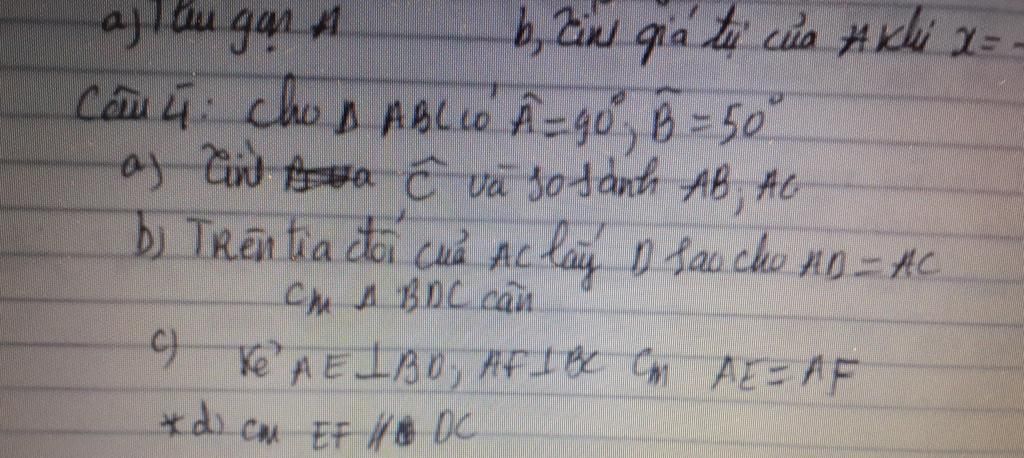 a) Thu gọn A b, Tính giá trị của A khi x = -
Câu 4: Cho Δ ABC có Â = 90°, B̂ = 50°
a) Tính Ĉ và so sánh AB, AC
b) Trên tia đối của AC lấy D sao cho AD = AC
CM Δ BDC cân
c) Kẻ AE ⊥ BD, AF ⊥ BC Cm AE = AF
*d) CM EF // DC